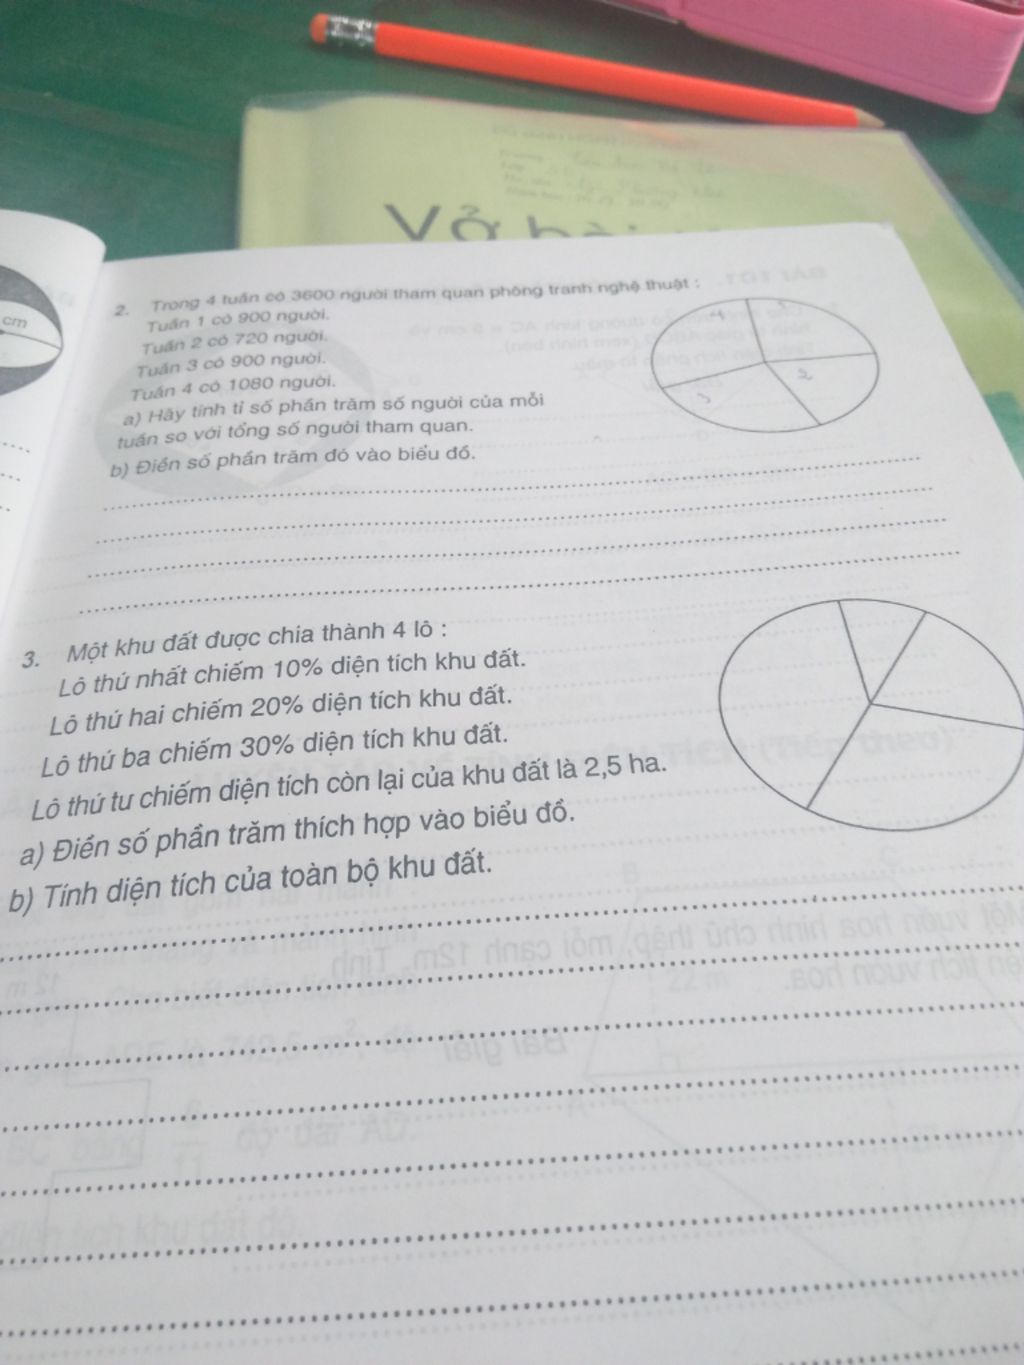 Vở
cm
2. Trong 4 tuần có 3600 người tham quan phòng tranh nghệ thuật :
Tuần 1 có 900 người.
Tuần 2 có 720 người.
Tuần 3 có 900 người.
Tuần 4 có 1080 người.
a) Hãy tính tỉ số phần trăm số người của mỗi
tuần so với tổng số người tham quan.
b) Điền số phần trăm đó vào biểu đồ.
4
2
3
3. Một khu đất được chia thành 4 lô :
Lô thứ nhất chiếm 10% diện tích khu đất.
Lô thứ hai chiếm 20% diện tích khu đất.
Lô thứ ba chiếm 30% diện tích khu đất.
Lô thứ tư chiếm diện tích còn lại của khu đất là 2,5 ha.
a) Điền số phần trăm thích hợp vào biểu đồ.
b) Tính diện tích của toàn bộ khu đất.